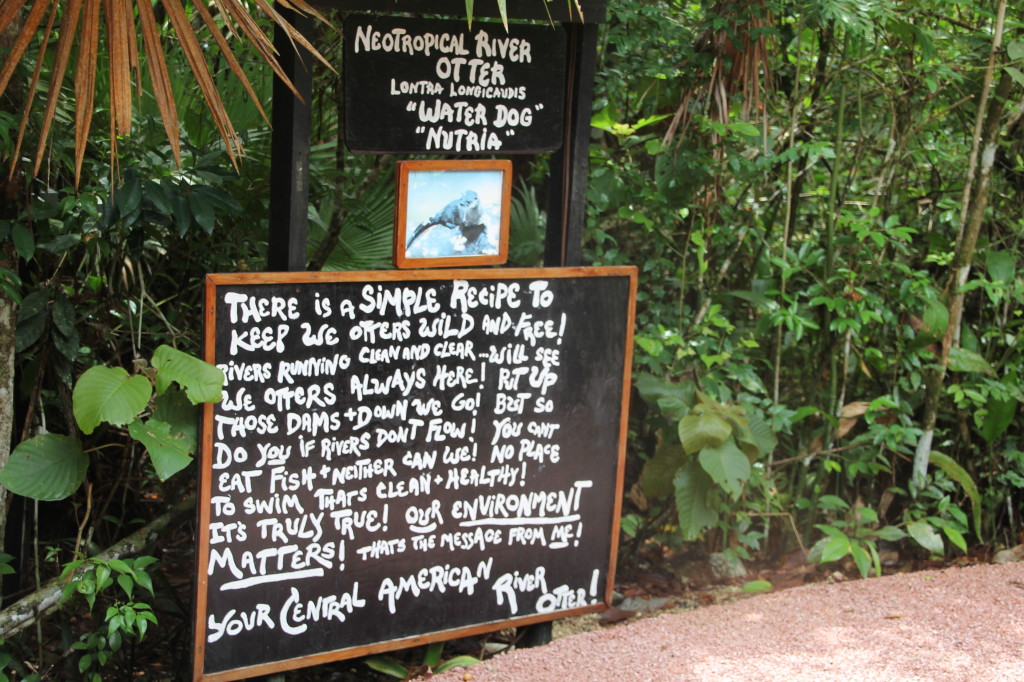 NEOTROPICAL RIVER
OTTER
LONTRA LONGICAUDIS
"WATER DOG"
"NUTRIA"
THERE IS A SIMPLE RECIPE TO
KEEP WE OTTERS WILD AND FREE!
RIVERS RUNNING CLEAN AND CLEAR...WILL SEE
WE OTTERS ALWAYS HERE! PUT UP
THOSE DAMS + DOWN WE GO! BUT SO
DO YOU IF RIVERS DON'T FLOW! YOU CAN'T
EAT FISH + NEITHER CAN WE! NO PLACE
TO SWIM THAT'S CLEAN + HEALTHY!
IT'S TRULY TRUE! OUR ENVIRONMENT
MATTERS! THAT'S THE MESSAGE FROM ME!
YOUR CENTRAL AMERICAN RIVER OTTER!